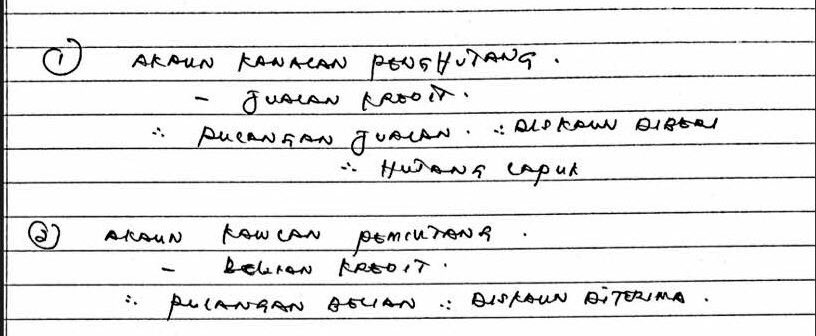 ① AKAUN KAWALAN PENGHUTANG.
- JUALAN KREDIT.
∴ PULANGAN JUALAN. ∴ DISKAUN DIBERI
∴ HUTANG LAPUK
② AKAUN KAWLAN PEMIUTANG.
- BELIAN KREDIT.
∴ PULANGAN BELIAN ∴ DISKAUN DITERIMA.